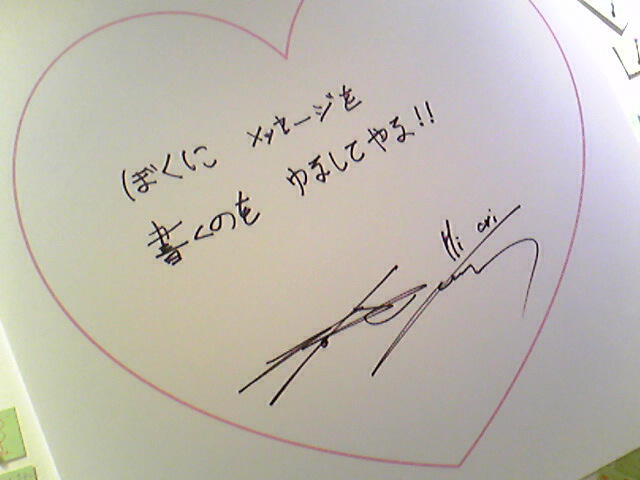 ぼくに メッセージを
書くのを ゆるしてやる!!